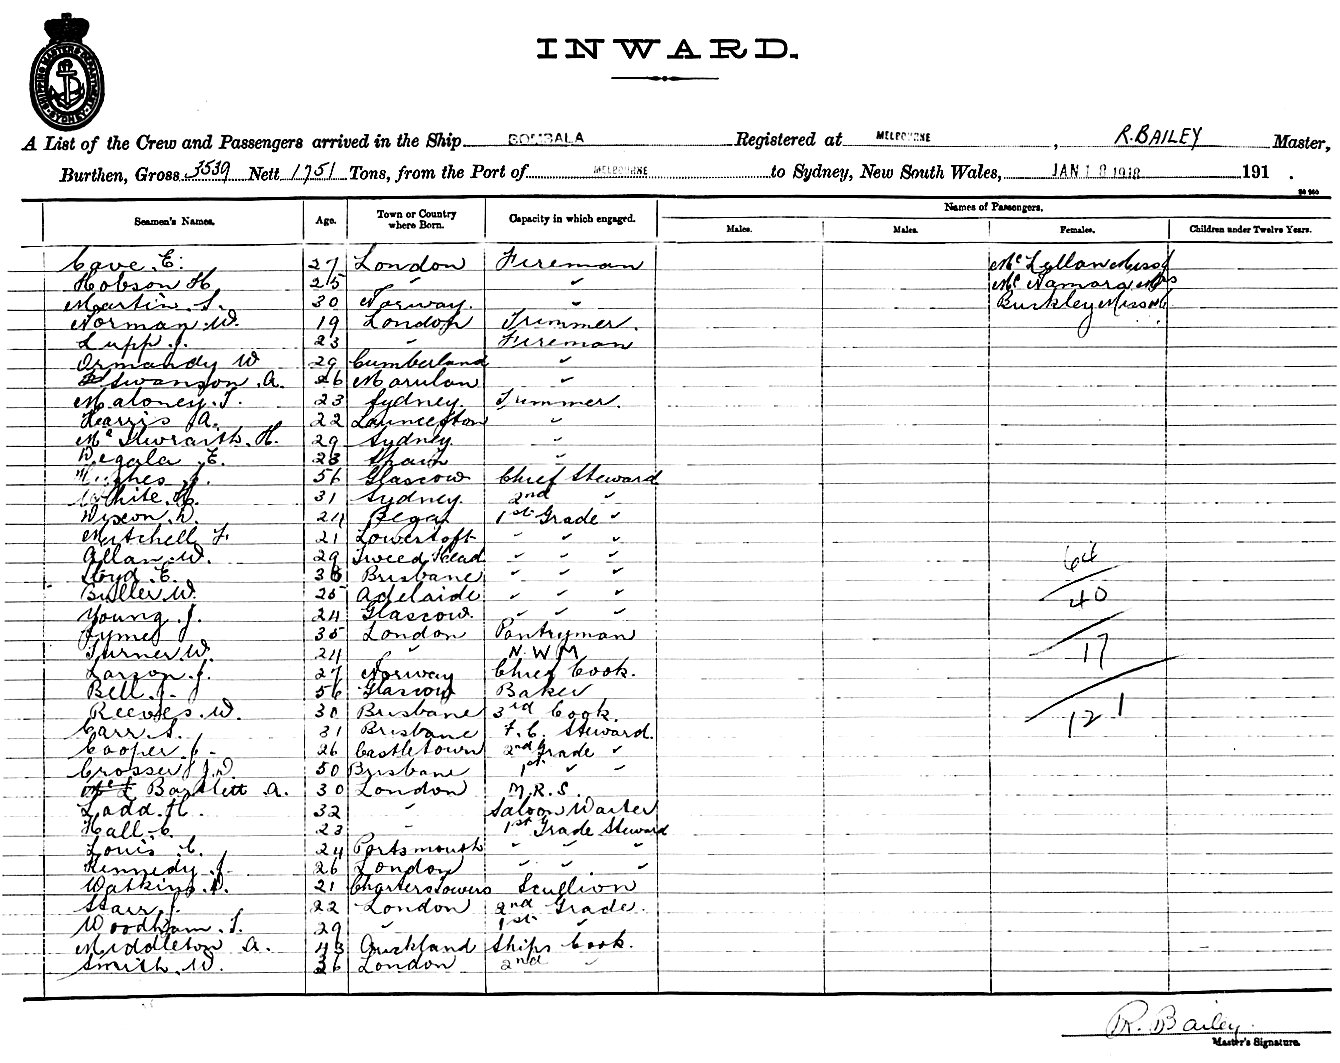 SHIPPING MASTERS DEPARTMENT SYDNEY
INWARD.
A List of the Crew and Passengers arrived in the Ship BOMBALA Registered at MELBOURNE, R. BAILEY Master,
Burthen, Gross 3539 Nett 1751 Tons, from the Port of MELBOURNE to Sydney, New South Wales, JAN 1 1918 191 .
Seamen's Names. Age. Town or Country where Born. Capacity in which engaged. Names of Passengers.
Males. Males. Females. Children under Twelve Years.
Cave E. 27 London Fireman Mc Lellan Miss J
Hobson H 25 " " Mc Namara Mrs
Martin S. 30 Norway. " Buckley Miss M
Norman W. 19 London Trimmer.
Lupp J. 23 " Fireman
Ormandy W 29 Cumberland "
Swanson A. 26 Marulan "
Maloney T. 23 Sydney. Trimmer.
Harris A. 22 Launceston "
Mc Ilwraith H. 29 Sydney. "
Degala E. 28 Spain "
Hughes J. 56 Glascow Chief Steward
White H. 31 Sydney. 2nd "
Dixson D. 24 Bega 1st Grade "
Mitchell F. 21 Lowerstoft " " "
Allan W. 29 Tweed Head " " "
Lloyd E. 38 Brisbane " " "
Buller W. 25 Adelaide " " "
Young J. 24 Glascow. " " "
Symes 35 London Pantryman
Turner W. 24 " N. W. M.
Larson J. 27 Norway Chief Cook.
Bell J. 56 Glascow Baker
Reeves W. 30 Brisbane 3rd Cook.
Carr S. 31 Brisbane F. C. Steward.
Cooper J. 26 Castletown 2nd Grade "
Crosser J. D 50 Brisbane 1st " "
Bartlett A. 30 London M. R. S.
Ladd H. 32 " Saloon Waiter
Hall C. 23 " 1st Grade Steward
Louis C. 24 Portsmouth " " "
Kennedy J. 26 London " " "
Watkins D. 21 Charterstowers Scullion
Starr J. 22 London 2nd Grade.
Woodham S. 29 " 1st "
Middleton A. 43 Auckland Ships Cook.
Smith W. 36 London 2nd "
64
40
17
121
R. Bailey
Master's Signature.